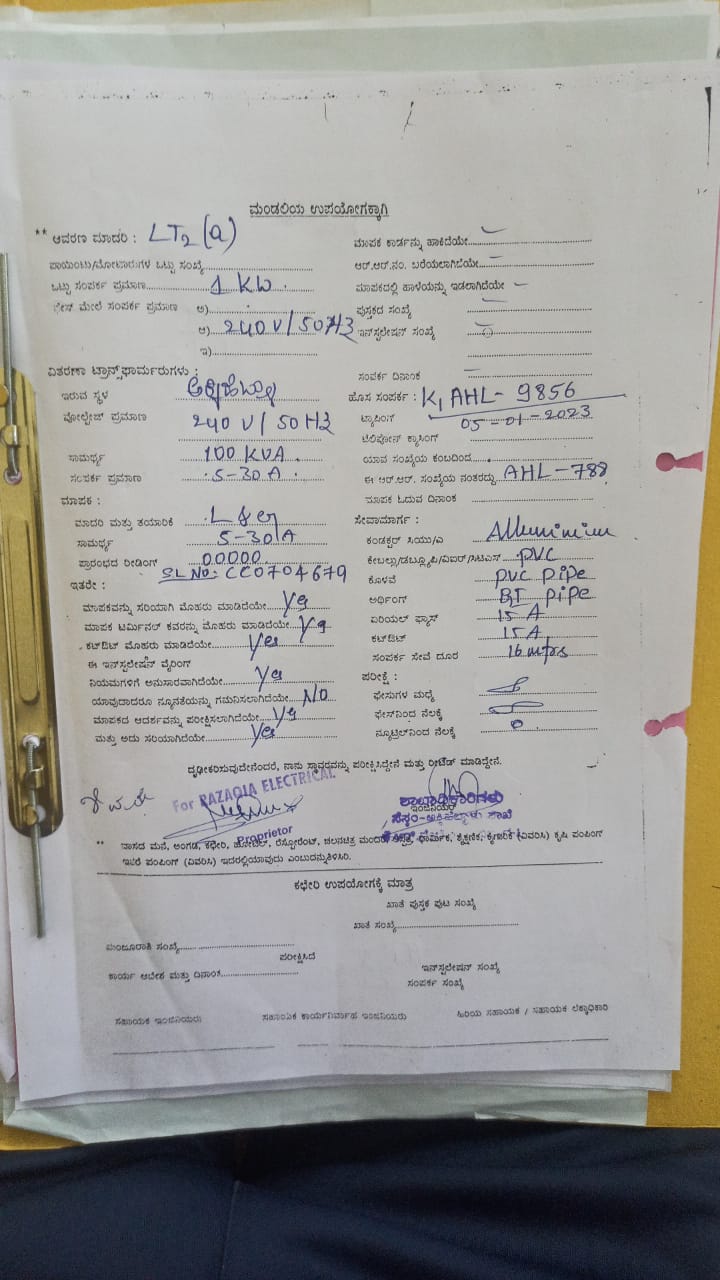 ಮಂಡಲಿಯ ಉಪಯೋಗಕ್ಕಾಗಿ
** ಆವರಣ ಮಾದರಿ : LT2 (a)
ಮಾಪಕ ಕಾರ್ಡನ್ನು ಹಾಕಿದೆಯೇ
ಪಾಯಿಂಟು/ಮೋಟಾರುಗಳ ಒಟ್ಟು ಸಂಖ್ಯೆ
ಆರ್.ಆರ್.ನಂ. ಬರೆಯಲಾಗಿದೆಯೇ
ಒಟ್ಟು ಸಂಪರ್ಕ ಪ್ರಮಾಣ 1 KW
ಮಾಪಕದಲ್ಲಿ ಹಾಳೆಯನ್ನು ಇಡಲಾಗಿದೆಯೇ
ಫೇಸ್ ಮೇಲೆ ಸಂಪರ್ಕ ಪ್ರಮಾಣ ಅ)
ಪುಸ್ತಕದ ಸಂಖ್ಯೆ
ಆ) 240 V/50HZ
ಇನ್‌ಸ್ಟಲೇಷನ್ ಸಂಖ್ಯೆ
ಇ)
ವಿತರಣಾ ಟ್ರಾನ್ಸ್‌ಫಾರ್ಮರುಗಳು :
ಸಂಪರ್ಕ ದಿನಾಂಕ
ಇರುವ ಸ್ಥಳ
ಹೊಸ ಸಂಪರ್ಕ : K, AHL- 9856
ವೋಲ್ಟೇಜ್ ಪ್ರಮಾಣ 240 V/ 50HZ
ಟ್ಯಾಪಿಂಗ್ 05-01-2023
ಟೆಲಿಫೋನ್ ಕ್ರಾಸಿಂಗ್
ಸಾಮರ್ಥ್ಯ 100 KVA
ಯಾವ ಸಂಖ್ಯೆಯ ಕಂಬದಿಂದ
ಸಂಪರ್ಕ ಪ್ರಮಾಣ 5-30A
ಈ ಆರ್.ಆರ್. ಸಂಖ್ಯೆಯ ನಂತರದ್ದು AHL-788
ಮಾಪಕ :
ಮಾಪಕ ಓದುವ ದಿನಾಂಕ
ಮಾದರಿ ಮತ್ತು ತಯಾರಿಕೆ
ಸೇವಾಮಾರ್ಗ :
ಸಾಮರ್ಥ್ಯ 5-30A
ಕಂಡಕ್ಟರ್ ಸಿಯು/ಎ Alluminium
ಪ್ರಾರಂಭದ ರೀಡಿಂಗ್ 00000
ಕೇಬಲ್ಲು/ಡಬ್ಲ್ಯೂಪಿ/ವಿಐಆರ್/ಸಿಟಿಎಸ್ PVC
SL NO: CC0704679
ಕೊಳವೆ PVC pipe
ಇತರೇ :
ಅರ್ಥಿಂಗ್ pipe
ಮಾಪಕವನ್ನು ಸರಿಯಾಗಿ ಮೊಹರು ಮಾಡಿದೆಯೇ Yes
ಏರಿಯಲ್ ಫ್ಯೂಸ್ 15 A
ಮಾಪಕ ಟರ್ಮಿನಲ್ ಕವರನ್ನು ಮೊಹರು ಮಾಡಿದೆಯೇ Yes
ಕಟ್‌ಔಟ್ 15 A
ಕಟ್‌ಔಟ್ ಮೊಹರು ಮಾಡಿದೆಯೇ Yes
ಸಂಪರ್ಕ ಸೇವೆ ದೂರ 16 mtrs
ಈ ಇನ್‌ಸ್ಟಲೇಷನ್ ವೈರಿಂಗ್
ನಿಯಮಗಳಿಗೆ ಅನುಸಾರವಾಗಿದೆಯೇ Yes
ಪರೀಕ್ಷೆ :
ಯಾವುದಾದರೂ ನ್ಯೂನತೆಯನ್ನು ಗಮನಿಸಲಾಗಿದೆಯೇ NO
ಫೇಸುಗಳ ಮಧ್ಯೆ
ಮಾಪಕದ ಆದರ್ಶವನ್ನು ಪರೀಕ್ಷಿಸಲಾಗಿದೆಯೇ Yes
ಫೇಸ್‌ನಿಂದ ನೆಲಕ್ಕೆ
ಮತ್ತು ಅದು ಸರಿಯಾಗಿದೆಯೇ Yes
ನ್ಯೂಟ್ರಲ್‌ನಿಂದ ನೆಲಕ್ಕೆ 0
ದೃಢೀಕರಿಸುವುದೇನೆಂದರೆ, ನಾನು ಸ್ಥಾವರವನ್ನು ಪರೀಕ್ಷಿಸಿದ್ದೇನೆ ಮತ್ತು ರೀಟೆಡ್ ಮಾಡಿದ್ದೇನೆ.
For RAZAQIA ELECTRICAL
Proprietor
ಶಾಖಾಧಿಕಾರಿಗಳು
ಇಂಜಿನಿಯರ್
** ವಾಸದ ಮನೆ, ಅಂಗಡಿ, ಕಛೇರಿ, ಹೋಟೆಲ್, ರೆಸ್ಟೋರೆಂಟ್, ಚಲನಚಿತ್ರ ಮಂದಿರ, ಆಸ್ಪತ್ರೆ, ಧಾರ್ಮಿಕ, ಶೈಕ್ಷಣಿಕ, ಕೈಗಾರಿಕೆ (ವಿವರಿಸಿ) ಕೃಷಿ ಪಂಪಿಂಗ್
ಇತರೆ ಪಂಪಿಂಗ್ (ವಿವರಿಸಿ) ಇದರಲ್ಲಿಯಾವುದು ಎಂಬುದನ್ನುತಿಳಿಸಿರಿ.
ಕಛೇರಿ ಉಪಯೋಗಕ್ಕೆ ಮಾತ್ರ
ಖಾತೆ ಪುಸ್ತಕ ಪುಟ ಸಂಖ್ಯೆ
ಖಾತೆ ಸಂಖ್ಯೆ
ಮಂಜೂರಾತಿ ಸಂಖ್ಯೆ
ಪರೀಕ್ಷಿಸಿದೆ
ಕಾರ್ಯ ಆದೇಶ ಮತ್ತು ದಿನಾಂಕ
ಇನ್‌ಸ್ಟಲೇಷನ್ ಸಂಖ್ಯೆ
ಸಂಪರ್ಕ ಸಂಖ್ಯೆ
ಸಹಾಯಕ ಇಂಜಿನಿಯರು
ಸಹಾಯಕ ಕಾರ್ಯನಿರ್ವಾಹಕ ಇಂಜಿನಿಯರು
ಹಿರಿಯ ಸಹಾಯಕ / ಸಹಾಯಕ ಲೆಕ್ಕಾಧಿಕಾರಿ